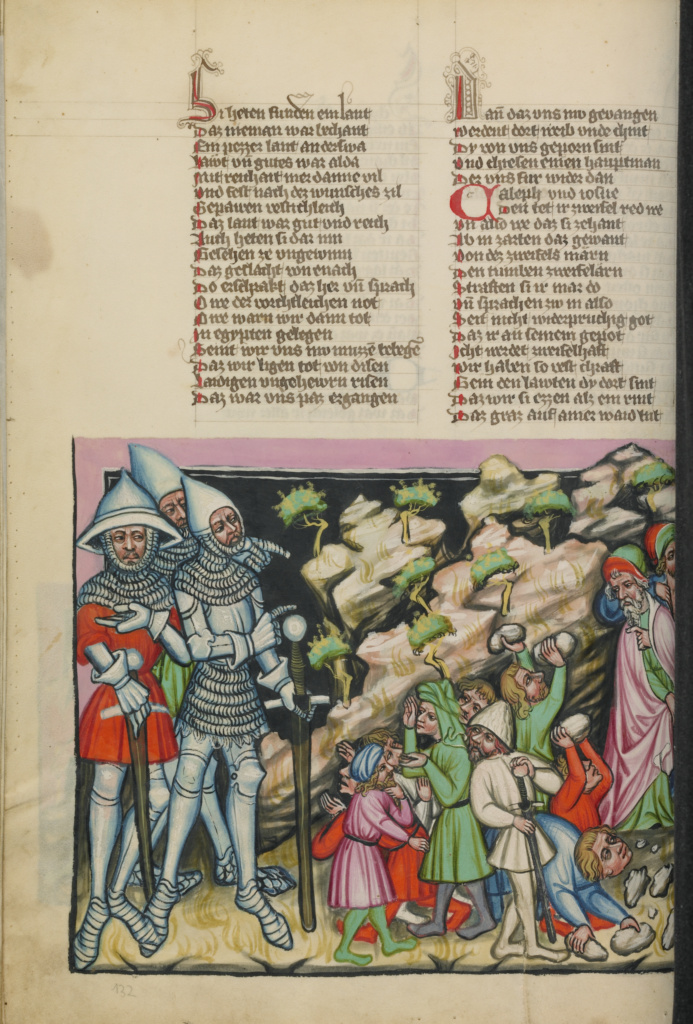 Si heten funden ein lant
Daz nieman war bechant
Ein pezzer lant anderswa
Lawt vn gutes war alda
Mit reichait mer danne vil
Vnd fest nach der wunsches zil
Gepawen vestichleich
Daz lant war gut vnd reich
Auch heten si dar inn
Gesehen ze vngewinn
Daz geslächt von enach
Do erschrakt daz her vn sprach
O we der vorchtleichen not
O we warn wir dann tot
In egypten gelegen
Seint wir vns nv müzzē bewege
Daz wir ligen tot von disen
Laidigen vngehewrn risen
Daz war vns paz ergangen
Dan daz vns nv gevangen
Werdent dort weib vnde chint
Dy von vns geporn sint
Vnd chiesen einen hauptman
Der vns für wider dan
Caleph vnd iosue
Den tet ir zweifel red we
Vn also we daz si zehant
Ab in zarten daz gewant
Von des zweifels marn
Den tumben zweifelarn
Straften si ir mar do
Vn sprachen zw in also
Seit nicht widerpruchig got
Daz ir an seinem gepot
Icht werdet zweifelhaft
Wir haben so vest chraft
Gein den läwten dy dort sint
Daz wir si ezzen alz ein rint
Daz graz auf ainer waid tut
132